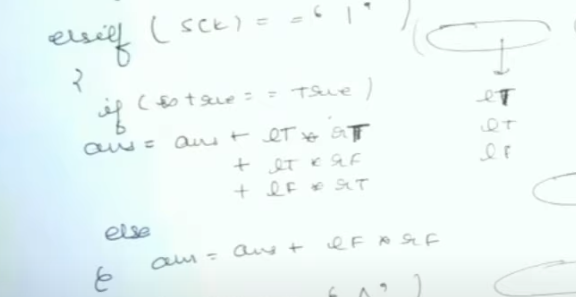 elseif (s[k] == '|')
{
if (isTrue == True)
ans = ans + lT * rT
+ lT * rF
+ lF * rT
else
{ ans = ans + lF * rF
lT
lT
lF
'^' )